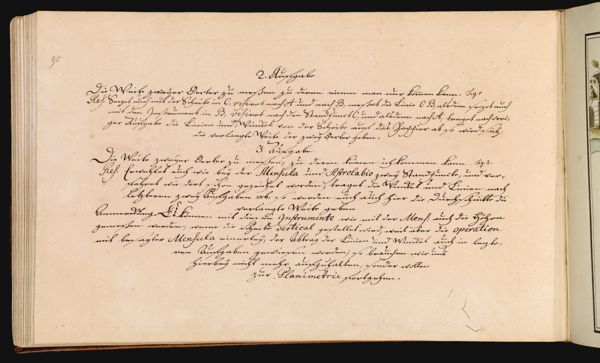 90
2. Aufgabe
Die Weite zweyer Oerter zu meßen zu deren einem man nur können kann. Fig.
Res. Setzet euch mit der Scheibe in C, visieret nach A und nach B, meßet die Linie C B alsdenn setzet euch
mit dem Instrument in B, visieret nach dem Standpunct C und alsdenn nach A, traget nach vori-
ger Aufgabe die Linien und Winckel von der Scheibe auf das Papier ab so wird sich
die verlangte Weite der zwey Oerter geben.
3 Aufgabe
Die Weite zweyer Oerter zu meßen, zu deren keinem ich kommen kann. Fig.
Res. Erwehlet euch wie bey der Mensula und Astrolabio zwey Standpuncte, und ver-
fahret wie dort schon gezeiget worden, traget die Winckel und Linien nach
letzteren zwey Aufgaben ab, so werden euch auch hier die Durchschnitte die
verlangte Weite geben
Anmerckung. Es können mit diesem Instrumente wie mit der Mens. auch die Höhen
gemeßen werden, wenn die Scheibe vertical gestellet wird, weil aber die operation
mit besagter Mensula einerley, der Abtrag der Linien und Winckel auch in letzte-
ren Aufgaben gewiesen worden, so brauchen wir uns
hierbey nicht mehr aufzuhalten, sondern wollen
zur Planimetrie fortgehen.